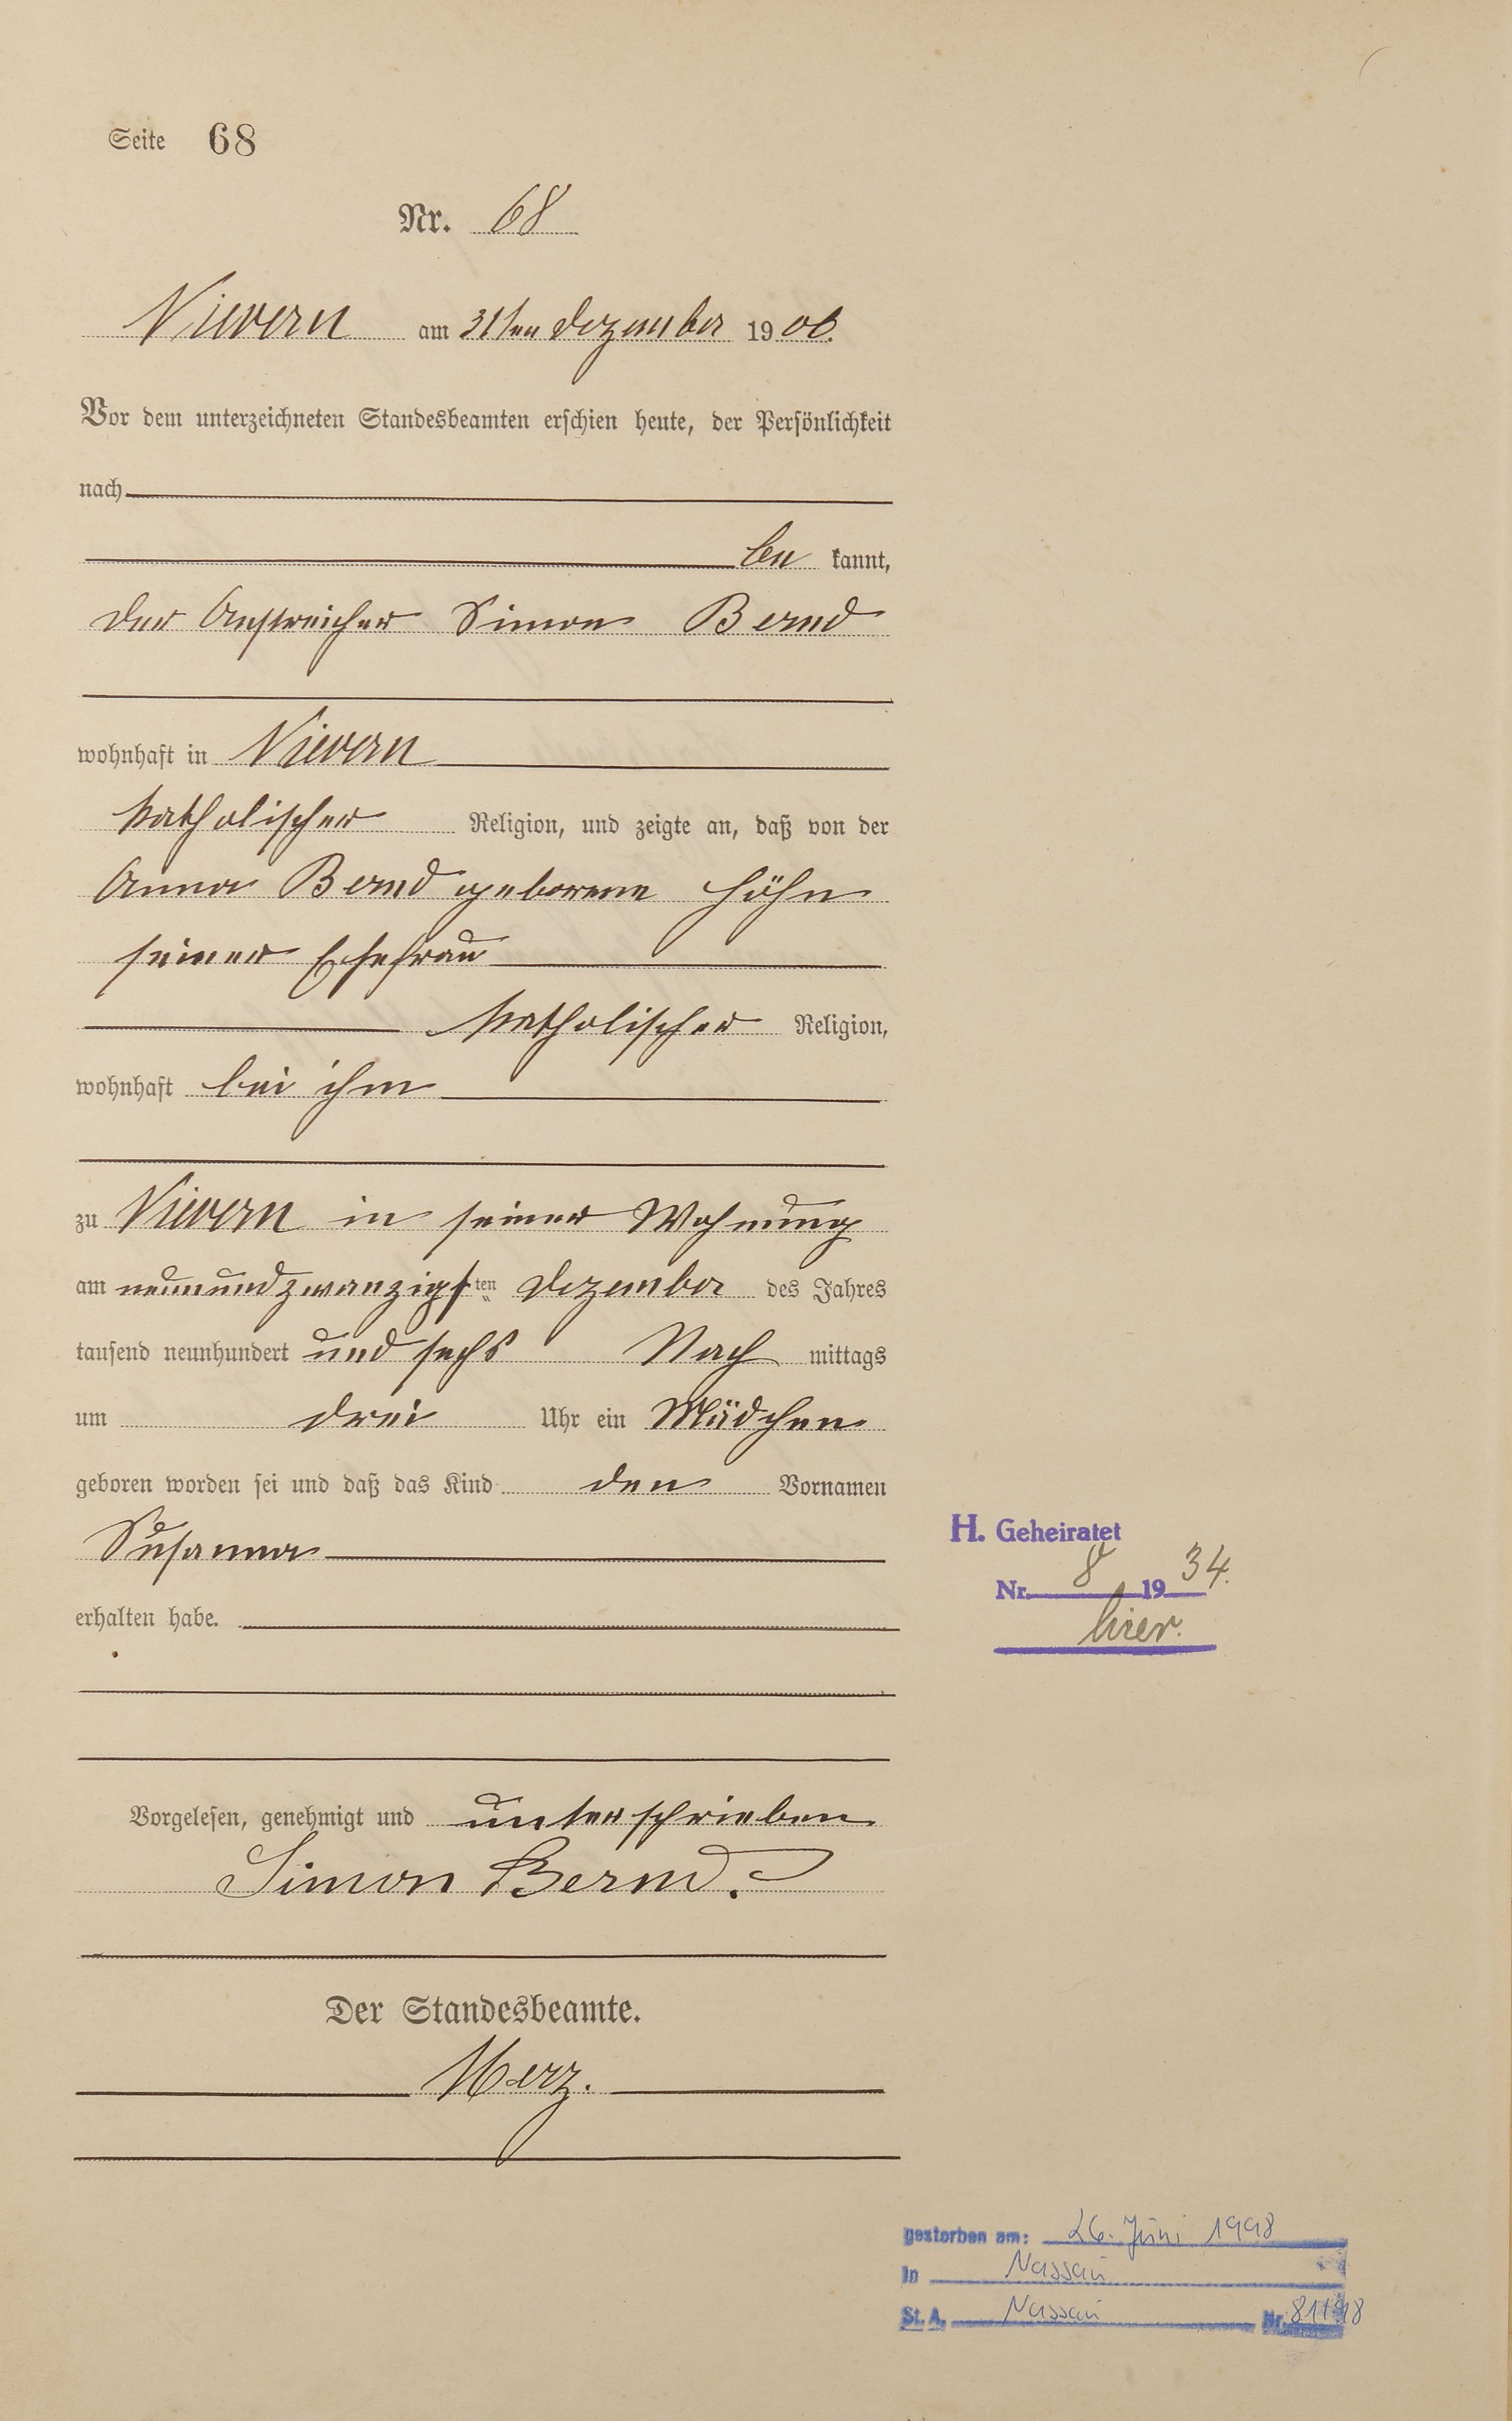 Seite 68
Nr. 68
Nievern am 31ten Dezember 1906.
Vor dem unterzeichneten Standesbeamten erschien heute, der Persönlichkeit
nach
be kannt,
der Anstreicher Simon Bernd
wohnhaft in Nievern
katholischer Religion, und zeigte an, daß von der
Anna Bernd geborene Höhn
seiner Ehefrau
katholischer Religion,
wohnhaft bei ihm
zu Nievern in seiner Wohnung
am neunundzwanzigsten Dezember des Jahres
tausend neunhundert und sechs Nach mittags
um drei Uhr ein Mädchen
geboren worden sei und daß das Kind den Vornamen
Susanna
erhalten habe.
Vorgelesen, genehmigt und unterschrieben
Simon Bernd.
Der Standesbeamte.
Merz.
H. Geheiratet
Nr. 8 1934.
hier.
gestorben am: 26. Juni 1998
in Nassau
St. A. Nassau Nr. 81/98